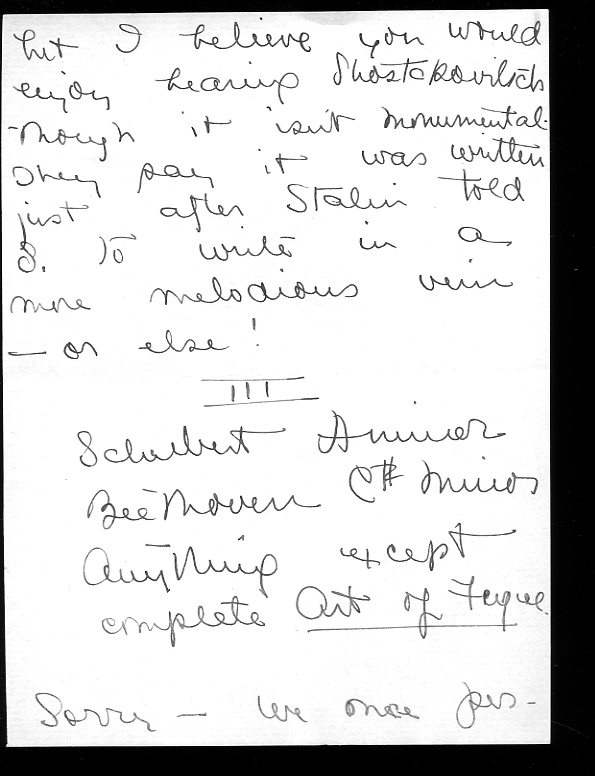 but I believe you would
enjoy hearing Shostakovitch
though it isn't monumental.
They say it was written
just after Stalin told
S. to write in a
more melodious vein
— or else!
III
Schubert A minor
Beethoven C# minor
Anything except
complete Art of Fugue.
Sorry — we once per-